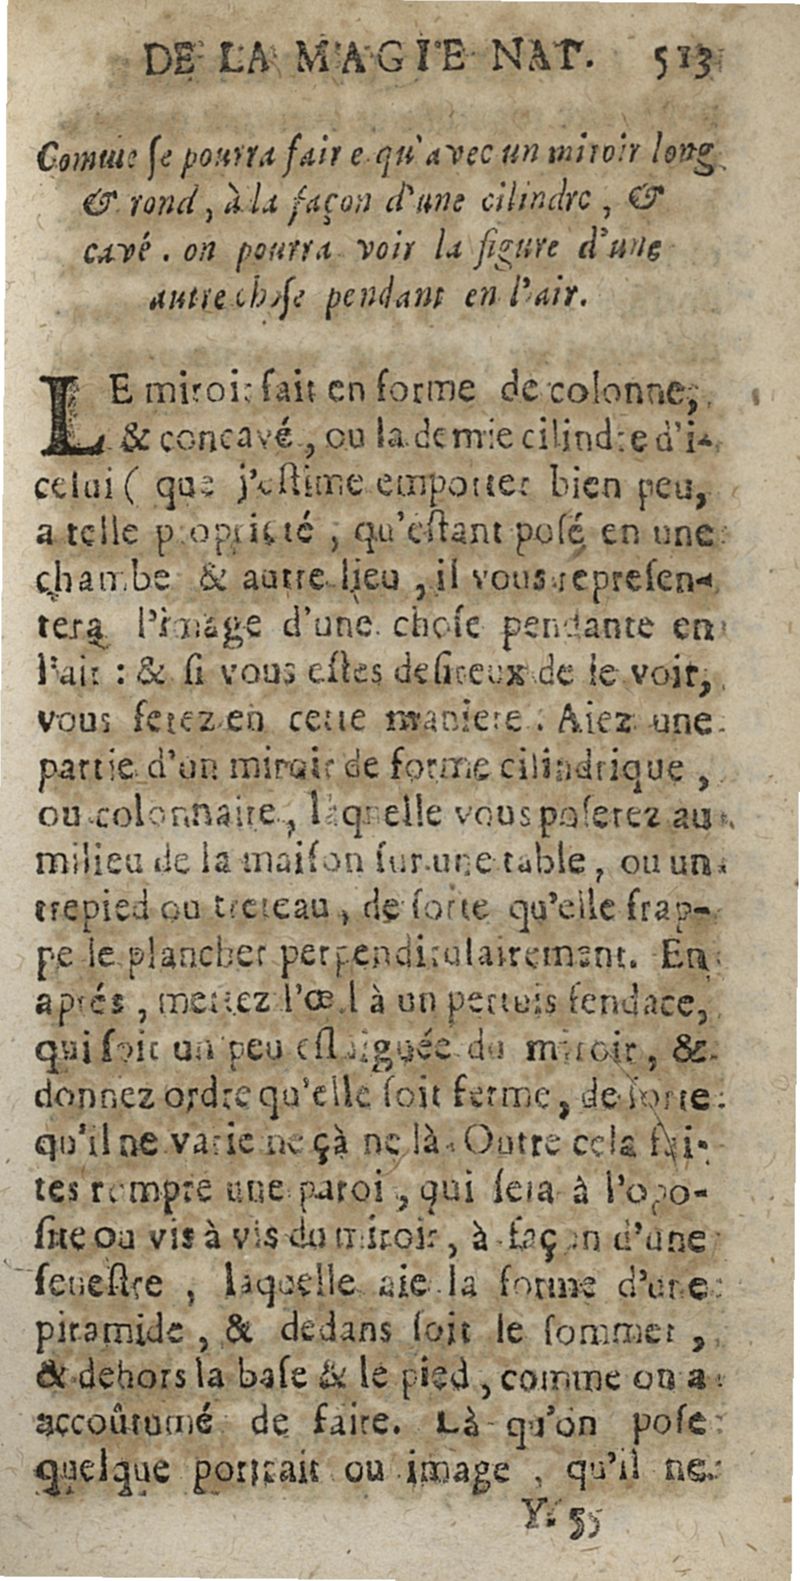 DE LA MAGIE NAT. 513
Comme ſe pourra faire qu'avec un miroir long
& rond, à la façon d'une cilindre, &
cavé. on pourra voir la figure d'une
autre choſe pendant en l'air.
LE miroir fait en forme de colonne,
& concavé, ou la demie cilindre d'i-
celui ( que j'eſtime emporter bien peu,
a telle proprieté, qu'eſtant poſé en une
chambe & autre lieu, il vous repreſen-
tera l'image d'une choſe pendante en
l'air : & ſi vous eſtes deſireux de le voir,
vous ferez en cette maniere. Aiez une
partie d'un miroir de forme cilindrique,
ou colonnaire, laquelle vous poſerez au
milieu de la maiſon ſur une table, ou un
trepied ou treteau, de ſorte qu'elle frap-
pe le plancher perpendiculairement. En
aprés, mettez l'œil à un pertuis fendace,
qui ſoit un peu eſloignée du miroir, &
donnez ordre qu'elle ſoit ferme, de ſorte
qu'il ne varie ne çà ne là. Outre cela fai-
tes rompre une paroi, qui ſera à l'opo-
ſite ou vis à vis du miroir, à façon d'une
feneſtre, laquelle aie la forme d'une
piramide, & dedans ſoit le ſommet,
& dehors la baſe & le pied, comme on a
accoûtumé de faire. Là qu'on poſe
quelque portrait ou image, qu'il ne
Y. 55